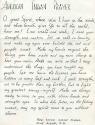 American Indian Prayer
O great Spirit, whose voice I hear in the winds
and whose breath gives life to all the world,
hear me! I am small and weak, I need your
strength and wisdom. Let me walk in beauty,
and make my eyes ever behold the red and
purple sunset. Make my hands respect the
things you have made and my ears sharp to
hear your voice. Make me wise so that I may
understand the things you have taught my
people. Let me learn the lessons you have
hidden in every leaf and rock. I seek strength,
not to be greater than my brother, but to fight
my greatest enemy - myself. Make me always
ready to come to you with clean hands and
straight eyes. So when life fades, as the fading
sunset, my spirit may come to you without
shame.